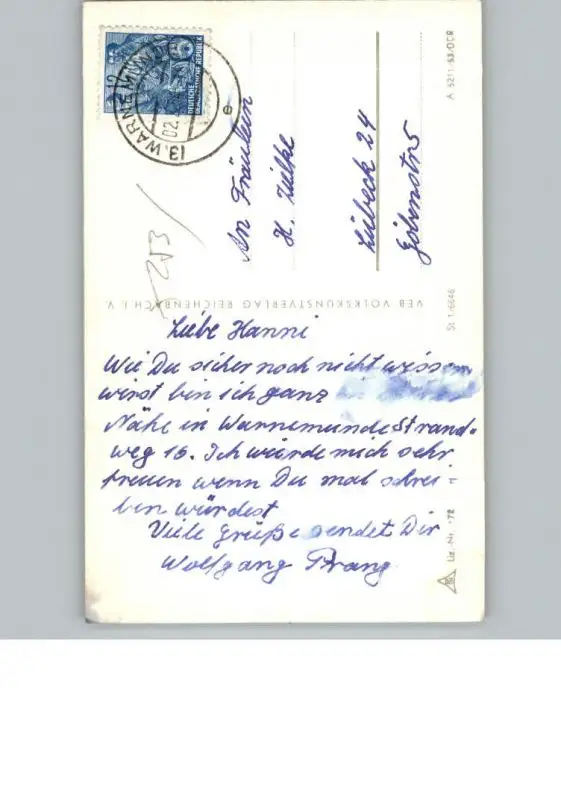 12
DEUTSCHE
DEMOKRATISCHE REPUBLIK
13. WARNEMÜNDE
02.
e
An Fräulein
H. Zülke
Lübeck 24
Gobenstr 5
A 6211/53/DDR
253
VEB VOLKSKUNSTVERLAG REICHENBACH I. V.
St 1/6646
Liebe Hanni
Wie Du sicher noch nicht wissen
wirst bin ich ganz
Nähe in Warnemünde Strand-
weg 16. Ich würde mich sehr
freuen wenn Du mal schrei-
ben würdest
Viele Grüße sendet Dir
Wolfgang Prang
Liz.-Nr.